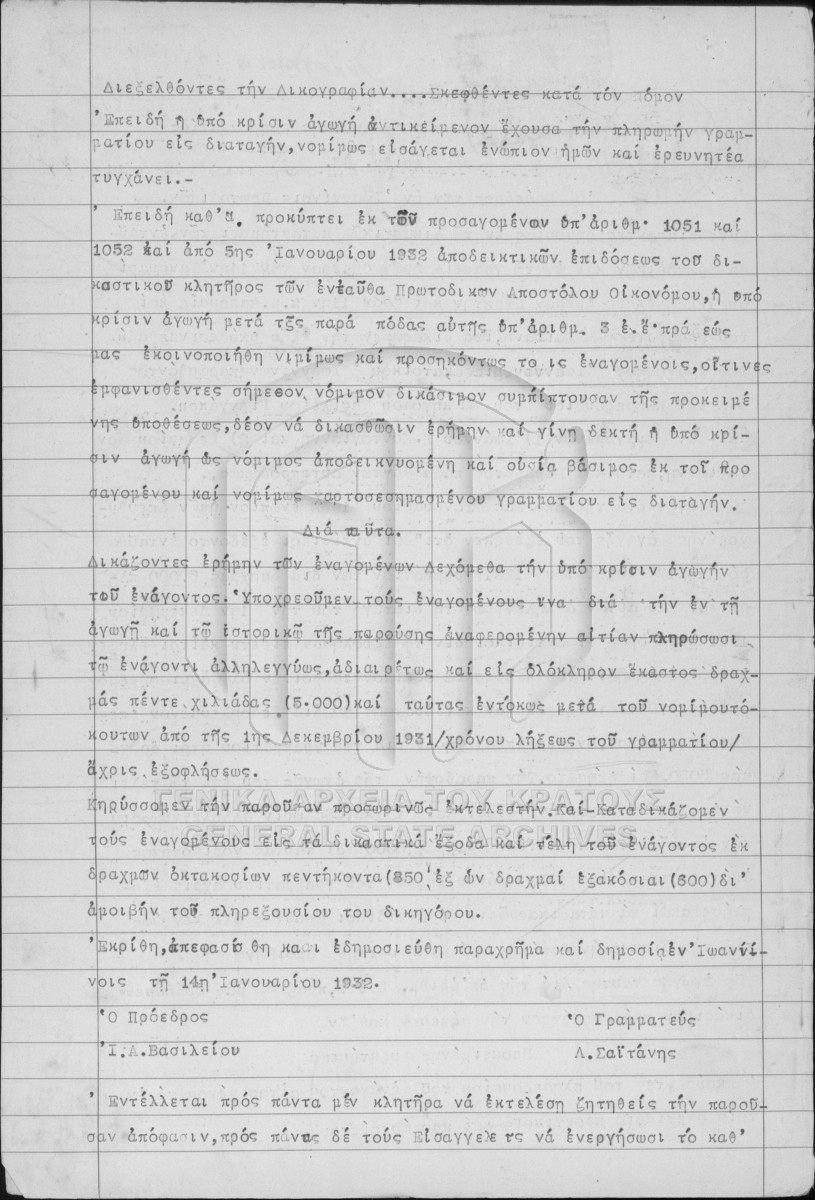 Διεξελθόντες τήν Δικογραφίαν....Σκεφθέντες κατά τόν Νόμον
'Επειδή ἡ ὑπό κρίσιν ἀγωγή ἀντικείμενον ἔχουσα τήν πληρωμήν γραμ-
ματίου εἰς διαταγήν,νομίμως εἰσάγεται ἐνώπιον ἡμῶν καί ἐρευνητέα
τυγχάνει.-
' Επειδή καθ'ἅ προκύπτει ἐκ τῶν προσαγομένων ὑπ'ἀριθμ. 1051 καί
1052 καί ἀπό 5ης 'Ιανουαρίου 1932 ἀποδεικτικῶν ἐπιδόσεως τοῦ δι-
καστικοῦ κλητῆρος τῶν ἐνταῦθα Πρωτοδικων Αποστόλου Οἰκονόμου,ἡ ὑπό
κρίσιν ἀγωγή μετά τξς παρά πόδας αὐτῆς ὑπ'ἀριθμ. 3 ἐ.ἔ πρά εώς
μας ἐκοινοποιήθη νιμίμως καί προσηκόντως το ις ἐναγομένοις,οἵτινες
ἐμφανισθέντες σήμερον νόμιμον δικάσιμον συμπίπτουσαν τῆς προκειμέ
νης ὑποθέσεως,δέον νά δικασθῶσιν ἐρήμην καί γίνῃ δεκτή ἡ ὑπό κρί-
σιν ἀγωγή ὡς νόμιμος ἀποδεικνυομένη καί οὐσίᾳ βάσιμος ἐκ τοῦ προ
σαγομένου καί νομίμως χαρτοσεσημασμένου γραμματίου εἰς διαταγήν.
Διά ταῦτα.
Δικάζοντες ἐρήμην τῶν ἐναγομένων Δεχόμεθα τήν ὑπό κρίσιν ἀγωγήν
τοῦ ἐνάγοντος.Ὑποχρεοῦμεν τούς ἐναγομένους ινα διά τήν ἐν τῇ
ἀγωγῇ καί τῷ ἱστορικῷ τῆς παρούσης ἀναφερομένην αἰτίαν πληρώσωσι
τῷ ἐνάγοντι ἀλληλεγγύως,ἀδιαιρέτως καί εἰς ὁλόκληρον ἕκαστος δραχ-
μάς πέντε χιλιάδας (5.000)καί ταύτας ἐντόκως μετά τοῦ νομίμουτό-
κουτων ἀπό τῆς 1ης Δεκεμβρίου 1931/χρόνου λήξεως τοῦ γραμματίου/
ἄχρις ἐξοφλήσεως.
Κηρύσσομεν τήν παροῦσαν προσωρινῶς ἐκτελεστήν.Καί-Καταδικάζομεν
τούς ἐναγομένους εἰς τά δικαστικά ἔξοδα καί τέλη τοῦ ἐνάγοντος ἐκ
δραχμῶν ὀκτακοσίων πεντήκοντα(850 ἐξ ὧν δραχμαί ἑξακόσιαι(600)δι'
ἀμοιβήν τοῦ πληρεξουσίου του δικηγόρου.
'Εκρίθη,ἀπεφασίσθη και ἐδημοσιεύθη παραχρῆμα καί δημοσίᾳἐν'Ιωαννί-
νοις τῇ 14ῃ'Ιανουαρίου 1932.
Ὁ Πρόεδρος Ὁ Γραμματεύς
'Ι.Α.Βασιλείου Λ.Σαϊτάνης
' Εντέλλεται πρός πάντα μέν κλητῆρα νά ἐκτελέσῃ ζητηθείς τήν παροῦ-
σαν ἀπόφασιν,πρός πάντας δέ τούς Εἰσαγγελεῖς νά ἐνεργήσωσι τό καθ'
ΓΕΝΙΚΑ ΑΡΧΕΙΑ ΤΟΥ ΚΡΑΤΟΥΣ
GENERAL STATE ARCHIVES